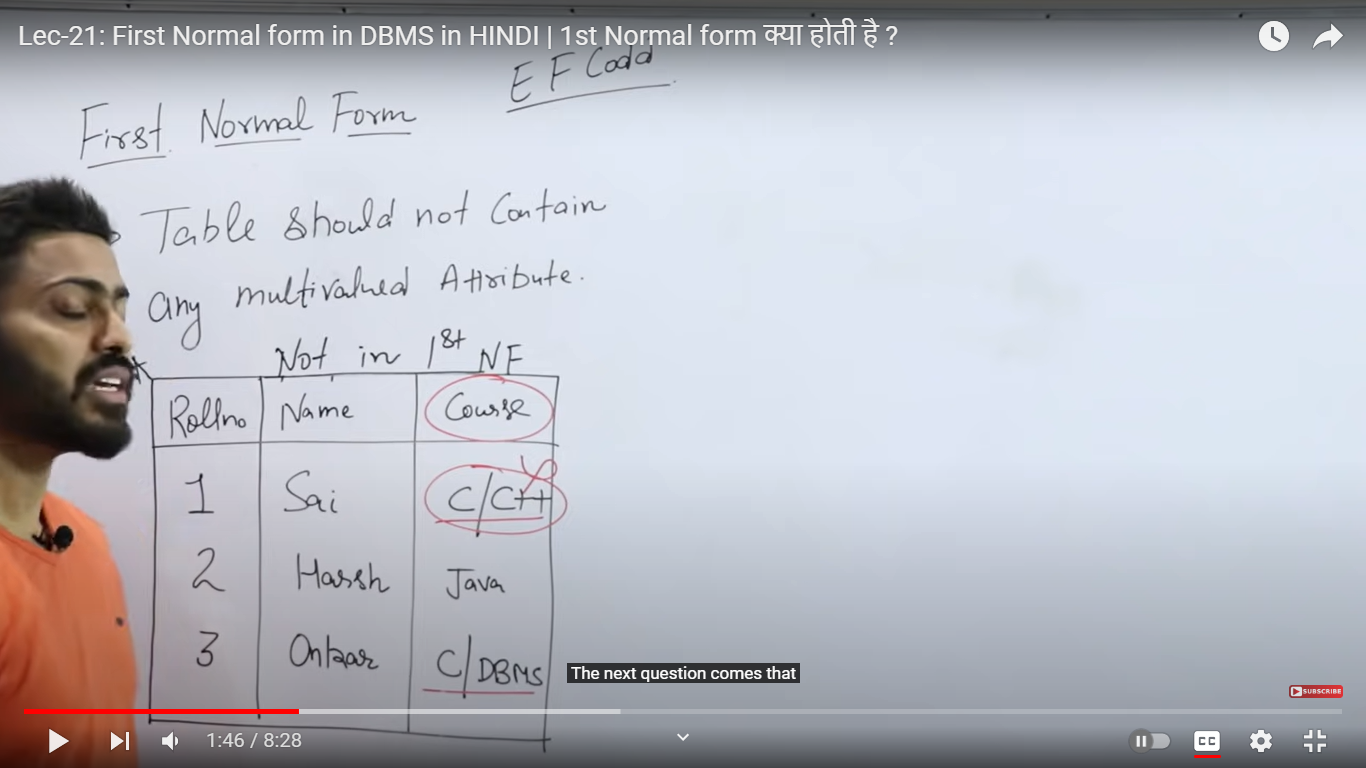 Lec-21: First Normal form in DBMS in HINDI | 1st Normal form क्या होती है ?
E F Codd
First Normal Form
Table should not Contain
any multivalued Attribute.
Not in 1st NF
Rollno Name Course
1 Sai C/C++
2 Harsh Java
3 Onkar C/DBMS
The next question comes that
SUBSCRIBE
1:46 / 8:28
CC